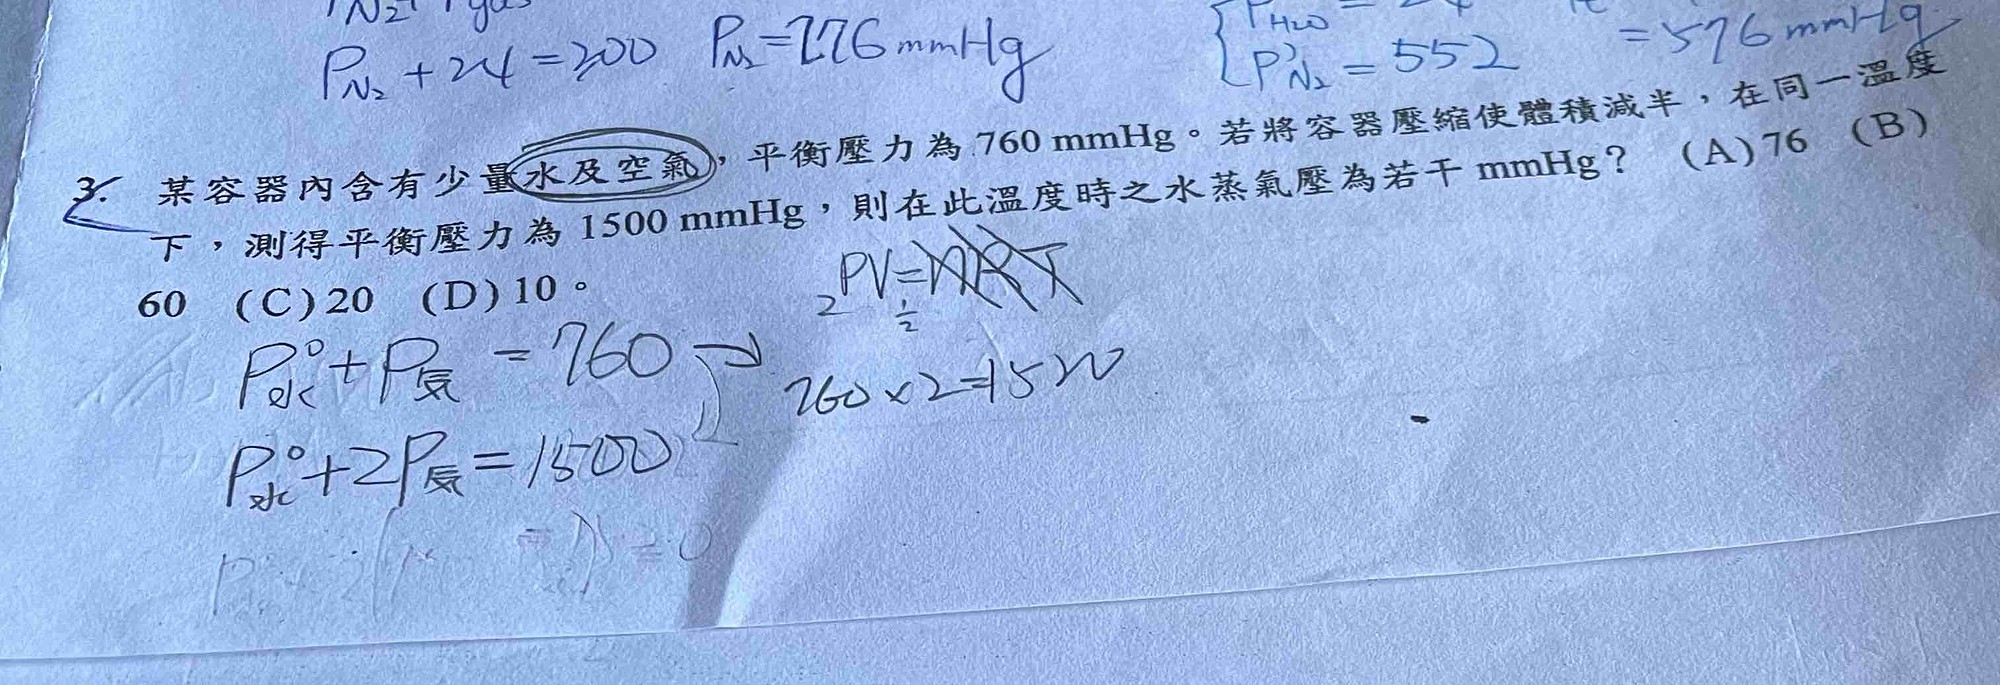 P N₂ + 24 = 200 P N₂ = 176 mmHg
P H₂O
P'N₂ = 552 = 576 mmHg
3. 某容器內含有少量水及空氣,平衡壓力為 760 mmHg。若將容器壓縮使體積減半,在同一溫度
下,測得平衡壓力為 1500 mmHg,則在此溫度時之水蒸氣壓為若干 mmHg? (A) 76 (B)
60 (C) 20 (D) 10。
2 PV = nRT
1/2
P°水 + P気 = 760
760 × 2 = 1520
P°水 + 2P気 = 1500